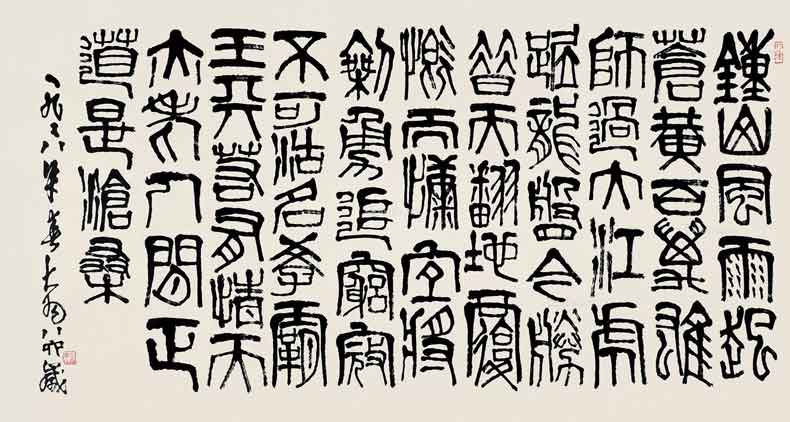 鍾山風雨起
蒼黃百萬雄
師過大江虎
踞龍盤今勝
昔天翻地覆
慨而慷宜將
剩勇追窮寇
不可沽名學霸
王天若有情天
亦老人間正
道是滄桑
一九 八年春大羽